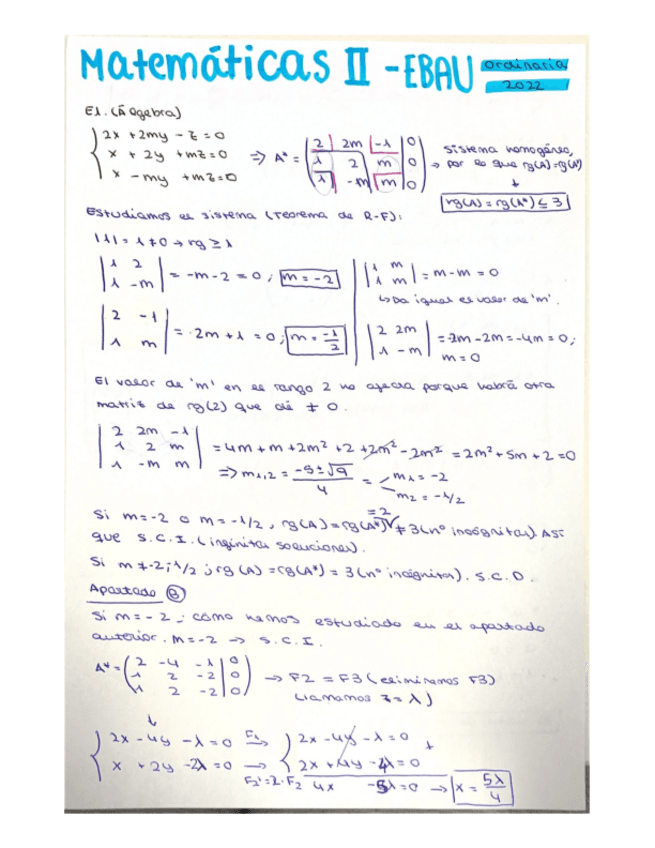 Matemáticas II - EBAU ordinaria 2022
E1. (Álgebra)
{ 2x + 2my - z = 0
x + 2y + mz = 0
x - my + mz = 0
=> A* = ( 2 2m -1 | 0
1 2 m | 0
1 -m m | 0 )
→ sistema homogéneo,
por lo que rg(A) = rg(A*)
↓
rg(A) = rg(A*) ≤ 3
Estudiamos el sistema (teorema de R-F):
|1| = 1 ≠ 0 → rg ≥ 1
| 1 2
1 -m | = -m - 2 = 0; m = -2
| 1 m
1 m | = m - m = 0
↳ Da igual el valor de 'm'.
| 2 -1
1 m | = 2m + 1 = 0; m = -1/2
| 2 2m
1 -m | = -2m - 2m = -4m = 0;
m = 0
El valor de 'm' en el rango 2 no afecta porque habrá otra
matriz de rg(2) que dé ≠ 0.
| 2 2m -1
1 2 m
1 -m m | = 4m + m + 2m² + 2 + 2m² - 2m² = 2m² + 5m + 2 = 0
=> m1,2 = (-5 ± √9)/4 = m1 = -2
m2 = -1/2
Si m = -2 o m = -1/2, rg(A) = rg(A*) = 2 ≠ 3 (nº incógnitas). Así
que S.C.I. (infinitas soluciones).
Si m ≠ -2; 1/2; rg(A) = rg(A*) = 3 (nº incógnitas). S.C.D.
Apartado B
Si m = -2; como hemos estudiado en el apartado
anterior. m = -2 → S.C.I.
A* = ( 2 -4 -1 | 0
1 2 -2 | 0
1 2 -2 | 0 )
→ F2 = F3 (eliminamos F3)
Llamamos z = λ)
↓
{ 2x - 4y - λ = 0
x + 2y - 2λ = 0
F1 →
F2' = 2·F2 →
{ 2x - 4y - λ = 0
2x + 4y - 4λ = 0
+
4x - 5λ = 0 → x = 5λ/4